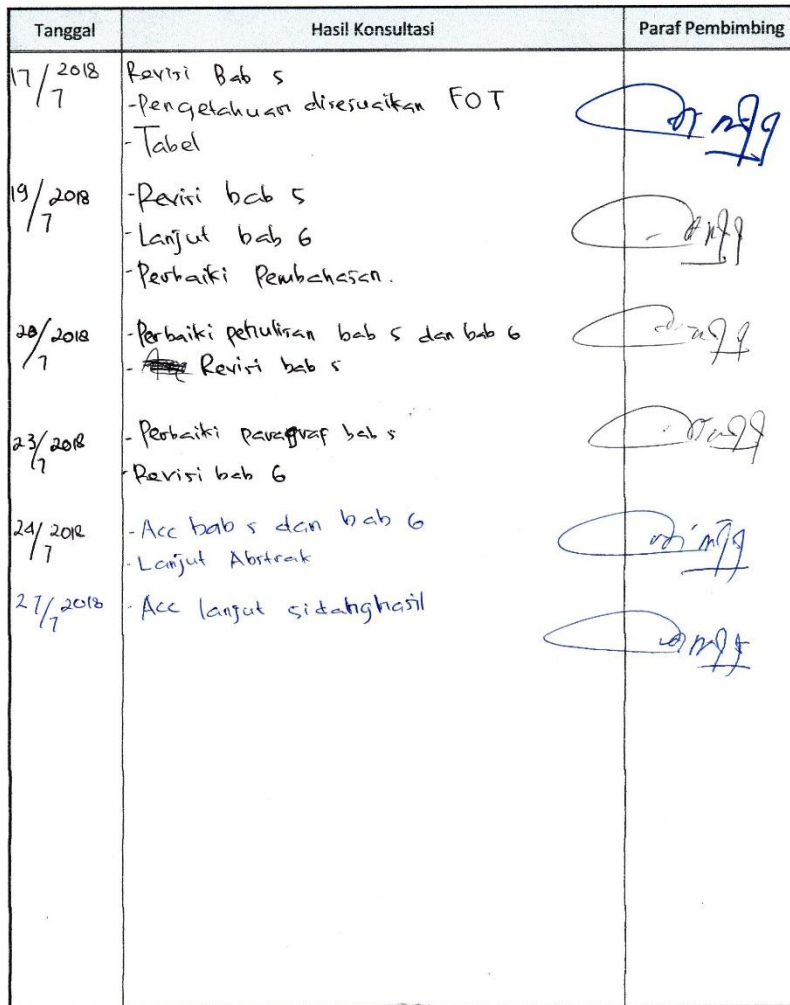 Tanggal Hasil Konsultasi Paraf Pembimbing
17/7 2018 Revisi Bab 5
-Pengetahuan disesuaikan FOT
-Tabel
19/7 2018 -Revisi bab 5
-Lanjut bab 6
-Perbaiki Pembahasan.
20/7 2018 -Perbaiki penulisan bab 5 dan bab 6
- Revisi bab 5
23/7 2018 -Perbaiki paragraf bab 5
-Revisi bab 6
24/7 2018 -Acc bab 5 dan bab 6
-Lanjut Abstrak
27/7 2018 -Acc lanjut sidang hasil